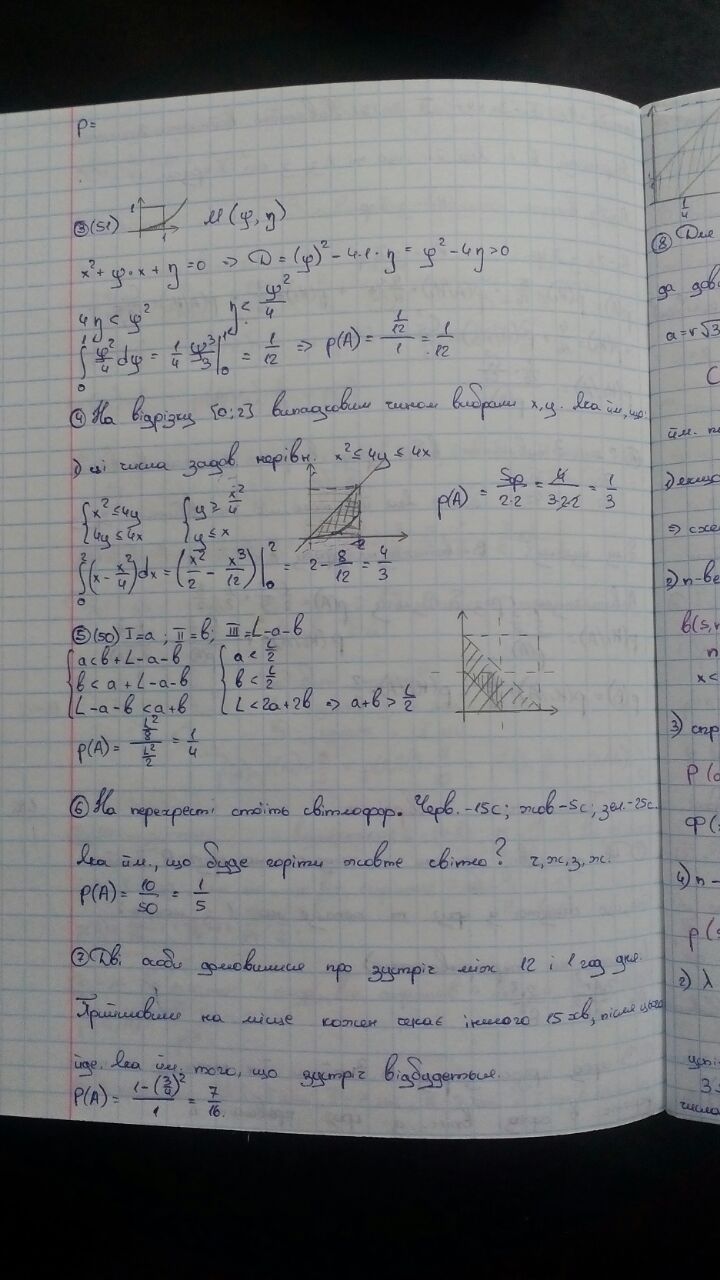 P=
③(51) 1 1 M(φ, η)
x²+φ·x+η=0 ⇒ D=(φ)²-4·1·η=φ²-4η>0
4η<φ² η<φ²/4
∫₀¹ φ²/4 dφ = 1/4 φ³/3 |₀¹ = 1/12 ⇒ p(A)= (1/12)/1 = 1/12
④ На відрізку [0;2] випадковим чином вибрали x,y. Яка йм., що:
1) ці числа задов. нерівн. x²≤4y≤4x
{x²≤4y {y≥x²/4 p(A)= Sф/2·2 = 4/3·2·2 = 1/3
{4y≤4x {y≤x
∫₀² (x-x²/4)dx=(x²/2 - x³/12)|₀² = 2-8/12=4/3
⑤(50) I=a; II=b; III=L-a-b
{a<b+L-a-b {a<L/2
{b<a+L-a-b {b<L/2
{L-a-b<a+b {L<2a+2b ⇒ a+b>L/2
p(A)= (L²/8)/(L²/2) = 1/4
⑥ На перехресті стоїть світлофор. Черв.-15с; жов-5с; зел.-25с.
Яка йм., що буде горіти жовте світло? ч,ж,з,ж.
P(A)= 10/50 = 1/5
⑦ Дві особи домовилися про зустріч між 12 і 1 год дня.
Прийшовши на місце кожен чекає іншого 15 хв, після цього
йде. Яка йм. того, що зустріч відбудеться.
P(A)= (1-(3/4)²)/1 = 7/16
1/4
⑧ Для
да дов
a=r√3
С
йм.
1) якщо
⇒ схе
2) n-ве
b(s,
n
x<
3) спр
P(
Ф(
4) n-
p(
2) λ
успі
3
числа